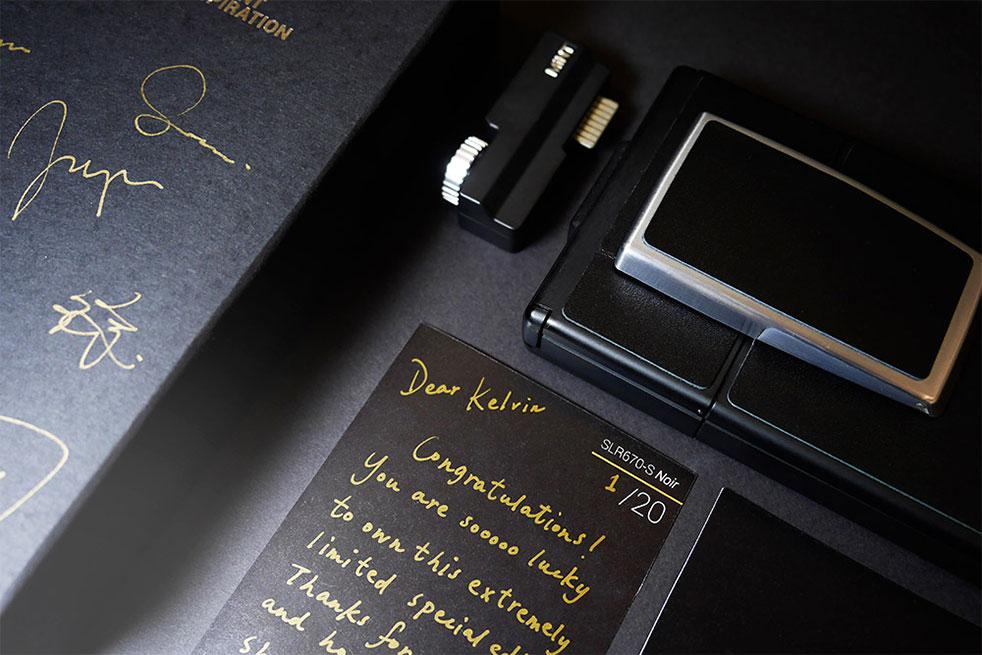 PIRATION
發
Dear Kelvin
SLR670-S Noir
1/20
Congratulations!
You are sooooo lucky
to own this extremely
limited special edi
Thanks for
and ho